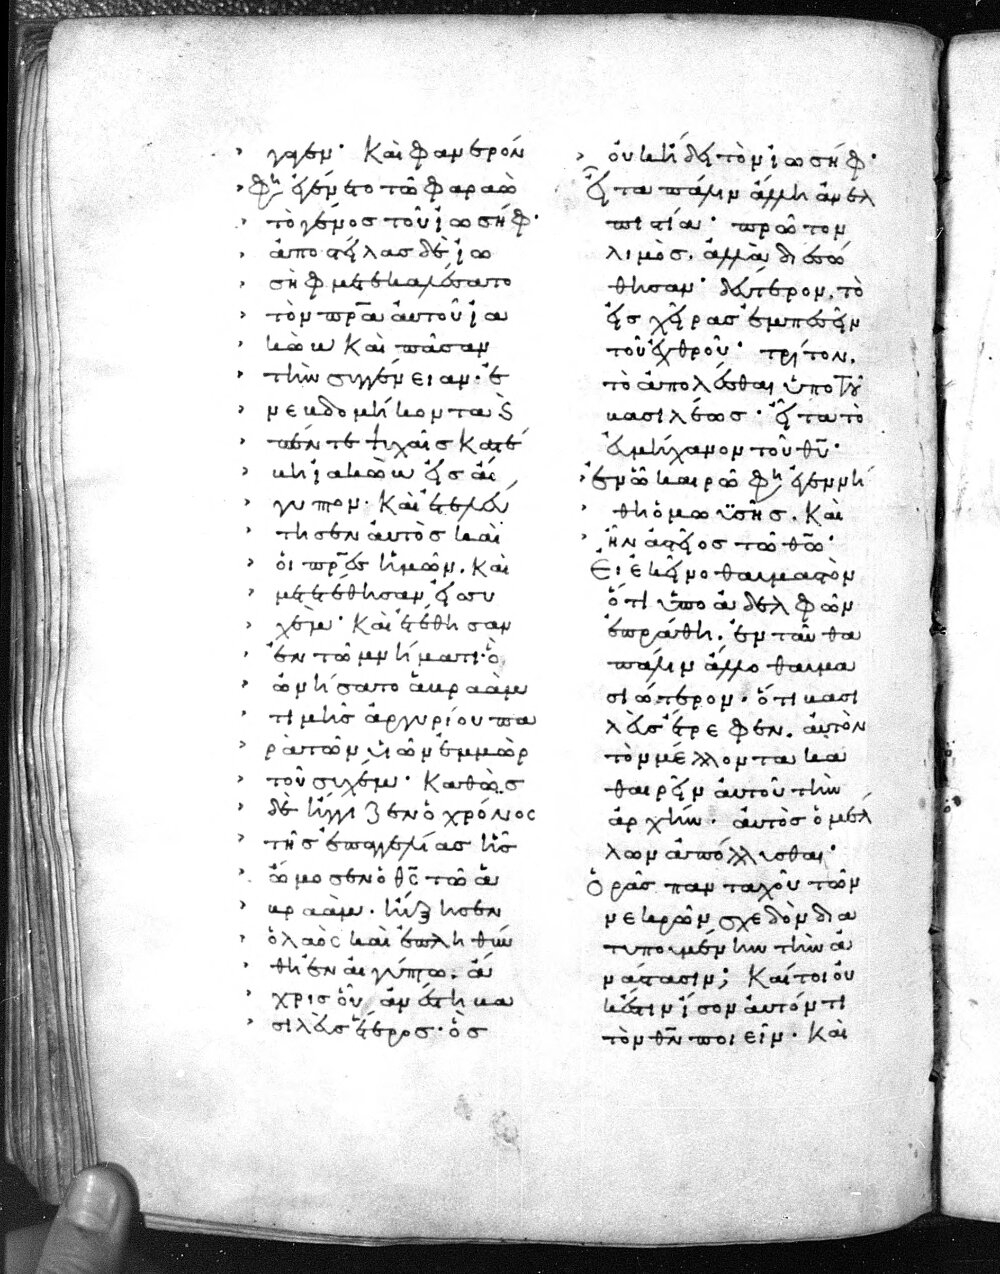 › γῆεν· Καὶ φανερὸν
› φη ἐγένετο τῶ φαραὼ
› τὸ γένος τοῦ ἰωσήφ·
› ἀποστείλας δὲ ἰω
› σὴφ μετεκαλέσατο
› τὸν πρα αὐτοῦ ἰα
› κὼβ Καὶ πᾶσαν
› τὴν συγγένειαν· ἐ
› νεβδομήκοντα
› πέντε ψυχαῖς Κατέ
› βη ἰακὼβ εἰς αἴ
› γυπτον· Καὶ ἐτελεύ
› τησεν αὐτὸς καὶ
› οἱ πρες ἡμῶν. Καὶ
› μετετέθησαν εἰς συ
› χὲμ· Καὶ ἐτέθησαν
› ἐν τῶ μνήματι· ὃ
› ὠνήσατο ἀβραὰμ
› τιμῆς ἀργυρίου πα
› ρὰ τῶν υἱῶν ἐμμὼρ
› τοῦ συχέμ· Καθὼς
› δὲ ἤγγιζεν ὁ χρόνος
› τῆς ἐπαγγελίας ἧς
› ὤμοσεν ὁ θς τῶ ἀ
› βραὰμ· ηὔξησεν
› ὁ λαὸς καὶ ἐπληθύν
› θη ἐν αἰγύπτω. ἄ
› χρις οὗ ἀνέστη βα
› σιλεὺς ἕτερος· ὃς
› οὐκ ἤδει τὸν ἰωσήφ·
εἶτα πάλιν ἄλλη ἀνελ
πιστία· πρῶτον
λιμὸς. ἀλλὰ διεσώ
θησαν· δεύτερον. τὸ
εἰς χεῖρας ἐμπεσεῖν
τοῦ ἐχθροῦ· τρίτον.
τὸ ἀπολέσθαι ὑπὸ τοῦ
βασιλέως· εἶτα τὸ
εὐμήχανον τοῦ θυ·
› ἐν ὧ καιρῶ φη ἐγεννή
› θη ὁ μωϋσῆς. Καὶ
› ἦν ἀστεῖος τῶ θω·
Εἰ ἐκεῖνο θαυμαστὸν
ὅτι ὑπὸ ἀδελφῶν
ἐπράθη. ἐνταῦθα
πάλιν ἄλλο θαυμα
σιώτερον. ὅτι βασι
λεὺς ἔτρεφεν. αὐτὸν
τὸν μέλλοντα κα
θαιρεῖν αὐτοῦ τὴν
ἀρχήν· αὐτὸς ὁ μέλ
λων ἀπόλλυσθαι·
Ὁρᾶς πανταχοῦ τῶν
νεκρῶν σχεδὸν δια
τυπουμένην τὴν ἀ
νάστασιν; Καίτοι οὐ
κ ἔστιν ἴσον αὐτόν τι
τὸν θν ποιεῖν· Καὶ